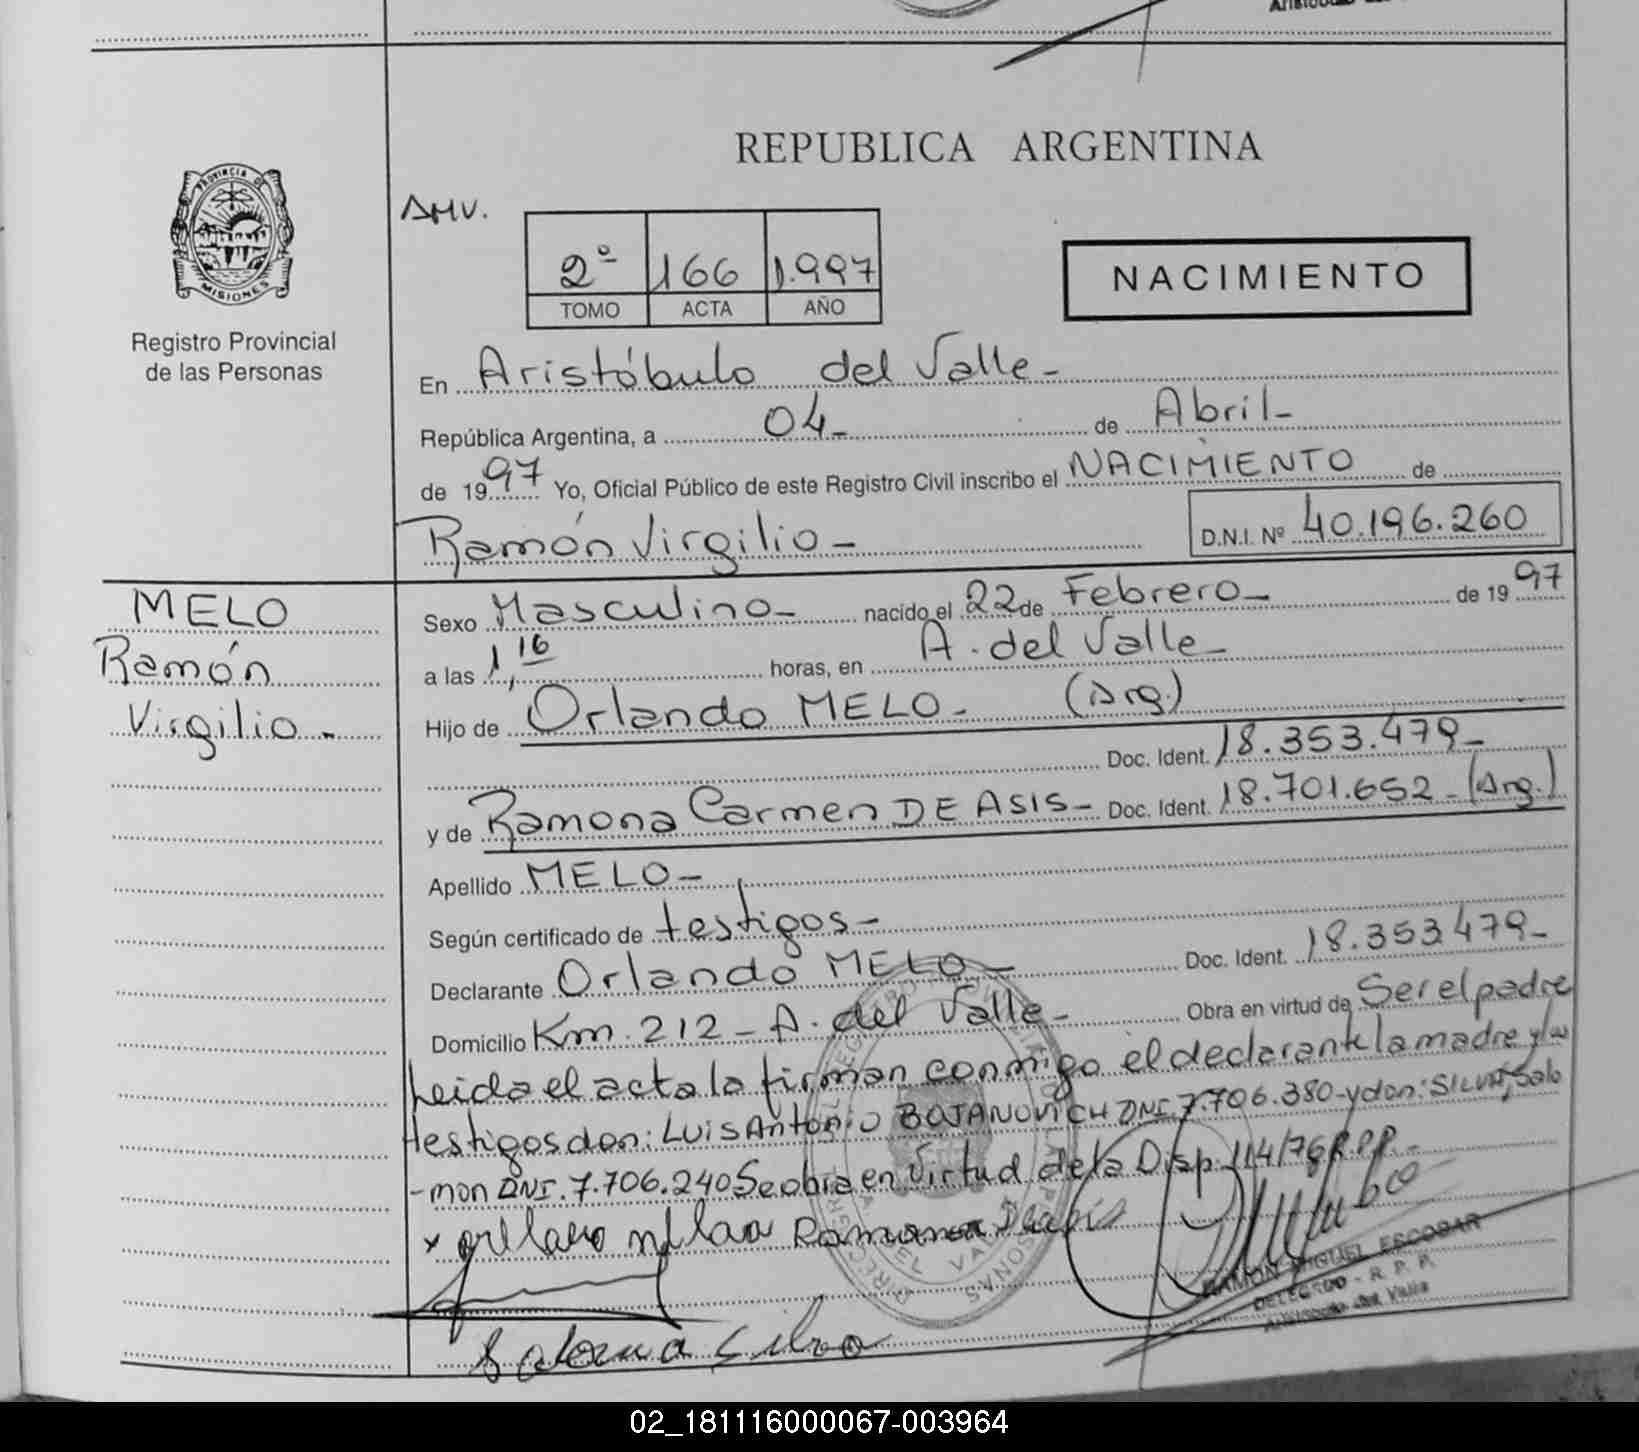 REPUBLICA ARGENTINA
PROVINCIA DE
MISIONES
Registro Provincial
de las Personas
AMV.
2º 166 1.997
TOMO ACTA AÑO
NACIMIENTO
En Aristóbulo del Valle-
República Argentina, a 04- de Abril-
de 1997 Yo, Oficial Público de este Registro Civil inscribo el NACIMIENTO de
Ramón Virgilio- D.N.I. Nº 40.196.260
MELO
Ramón
Virgilio-
Sexo Masculino- nacido el 22 de Febrero- de 1997
a las 1,16 horas, en A. del Valle-
Hijo de Orlando MELO- (Arg.)
Doc. Ident. 18.353.479-
y de Ramona Carmen DE ASIS- Doc. Ident. 18.701.652-(Arg.)
Apellido MELO-
Según certificado de testigos-
Declarante Orlando MELO- Doc. Ident. 18.353479-
Domicilio Km.212-A. del Valle- Obra en virtud de Ser el padre
Leida el acta la firman conmigo el declarante la madre y los
testigos don: Luis Antonio BOJANOVICH DNI.7.706.380-y don: SILVA, Salo
-mon DNI.7.706.240 Se obra en virtud de la Disp. 114/76 R.P.P.-
x Ramona
RAMON MIGUEL ESCOBAR
DELEGADO - R. P. P.
Aristobulo del Valle
Silva
02_181116000067-003964